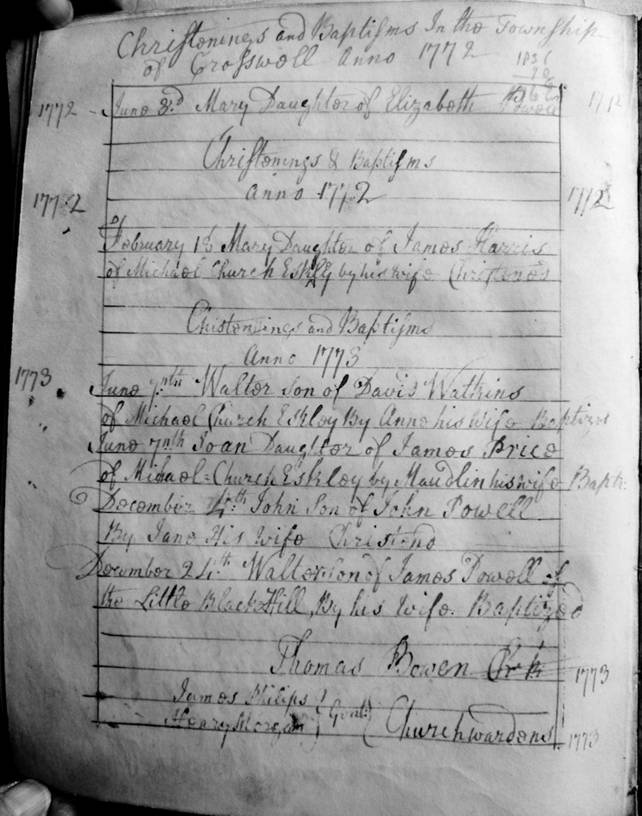 Christenings and Baptisms In the Township
of Crosswell Anno 1772
1772 June 3d Mary Daughter of Elizabeth Powell 1772
Christenings & Baptisms
Anno 1772
1772 1772
February 18 Mary Daughter of James Harris
of Michael Church Eskley by his wife Christened
Christenings and Baptisms
Anno 1773
1773
June 7th Walter Son of David Watkins
of Michael Church Eskley By Anne his Wife Baptized
June 7th Joan Daughter of James Price
of Mihael=Church Eskley by Maudlin his wife Bapti
December 4th John Son of John Powell
By Jane His Wife Christend
December 24th Walter son of James Powell of
the Little Black Hill, By his Wife. Baptized
Thomas Bowen Clrk 1773
James Philips
Henry Morgan Gent: Churchwardens 1773